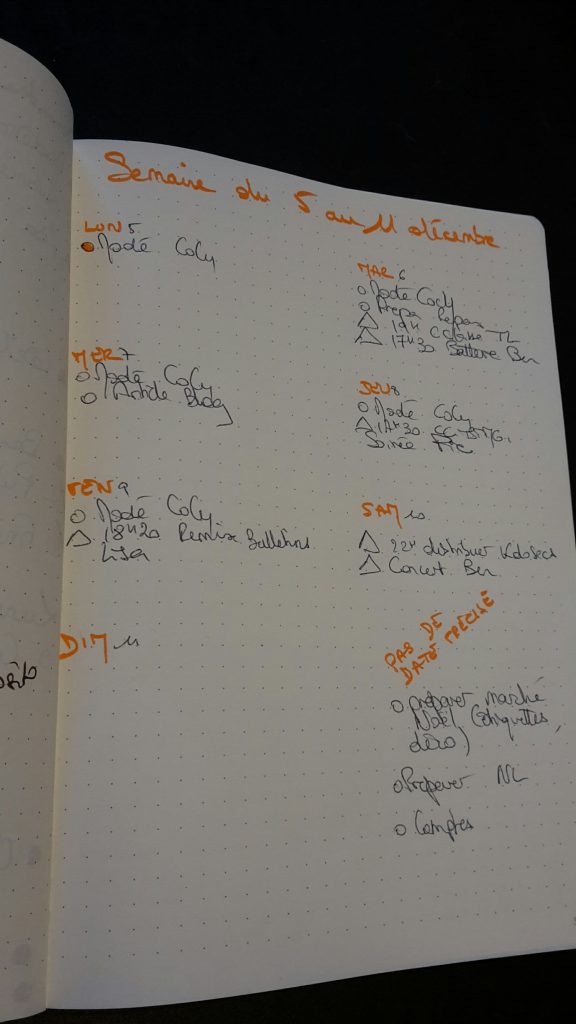 Semaine du 5 au 11 décembre
LUN 5
Modé Coly
MAR 6
Modé Coly
Prépa repas
19H Classe TL
17H30 Batterie Ben
MER 7
Modé Coly
Article Blog
JEU 8
Modé Coly
Soirée
VEN 9
Modé Coly
18H20 Remise Bulletins
Lisa
SAM 10
22H distribuer
Concert Ben
DIM 11
PAS DE
DATE PRÉCISE
préparer marché
Noël (étiquettes,
déco)
Préparer NL
Comptes